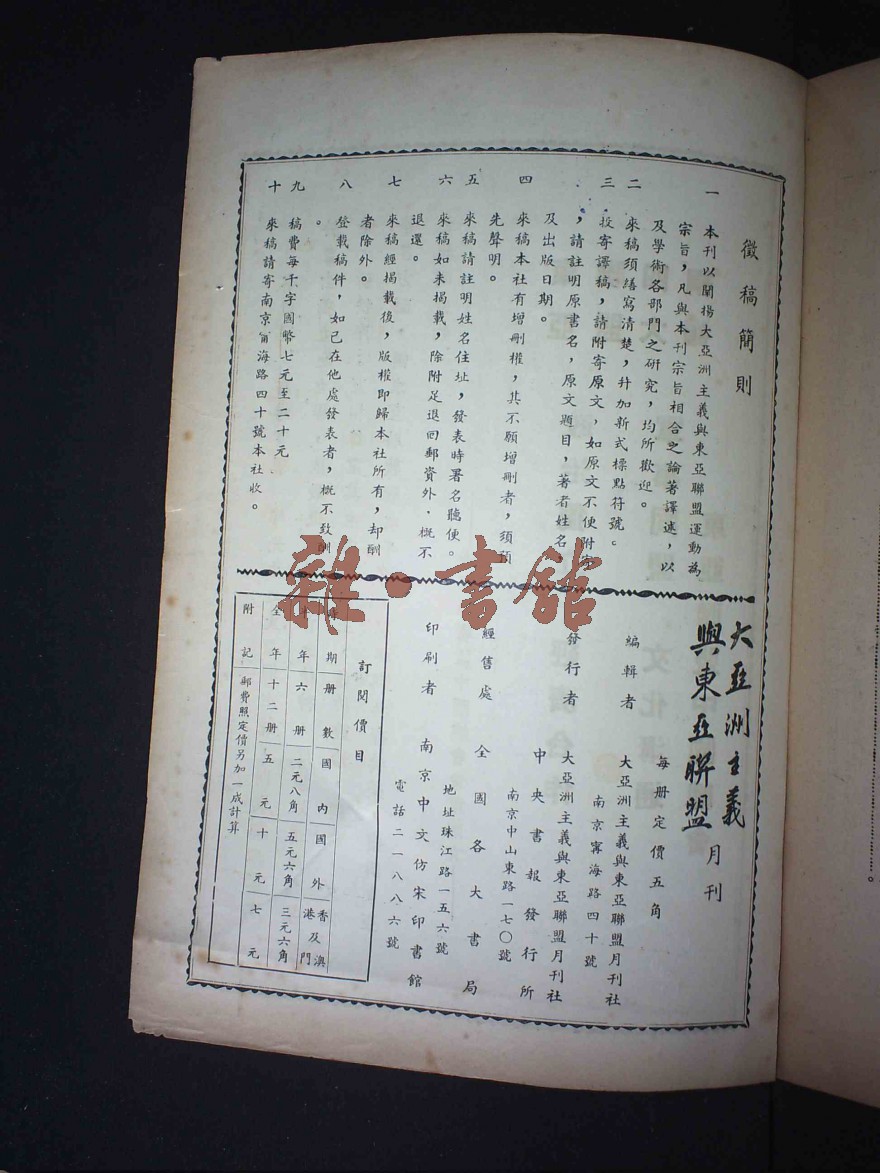 徵稿簡則
一 本刊以闡揚大亞洲主義與東亞聯盟運動為
宗旨，凡與本刊宗旨相合之論著譯述，以
及學術各部門之研究，均所歡迎。
二 來稿須繕寫清楚，幷加新式標點符號。
三 投寄譯稿，請附寄原文，如原文不便附
，請註明原書名，原文題目，著者姓名，
及出版日期。
四 來稿本社有增刪權，其不願增刪者，須預
先聲明。
五 來稿請註明姓名住址，發表時署名聽便。
六 來稿如未揭載，除附足退回郵資外．概不
退還。
七 來稿經揭載後，版權即歸本社所有，却酬
者除外。
八 登載稿件，如已在他處發表者，概不致酬
。
九 稿費每千字國幣七元至二十元
十 來稿請寄南京甯海路四十號本社收。
大亞洲主義
與東亞聯盟 月刊
每册定價五角
編輯者 大亞洲主義與東亞聯盟月刊社
南京寗海路四十號
發行者 大亞洲主義與東亞聯盟月刊社
中央書報發行所
南京中山東路一七〇號
經售處 全國各大書局
印刷者 南京中文仿宋印書館
地址珠江路一五六號
電話二一八八六號
訂閱價目
期 册數 國內 國外 香港及澳門
年 六册 二元八角 五元六角 三元六角
全年 十二册 五元 十元 七元
附記 郵費照定價另加一成計算
雜·書館